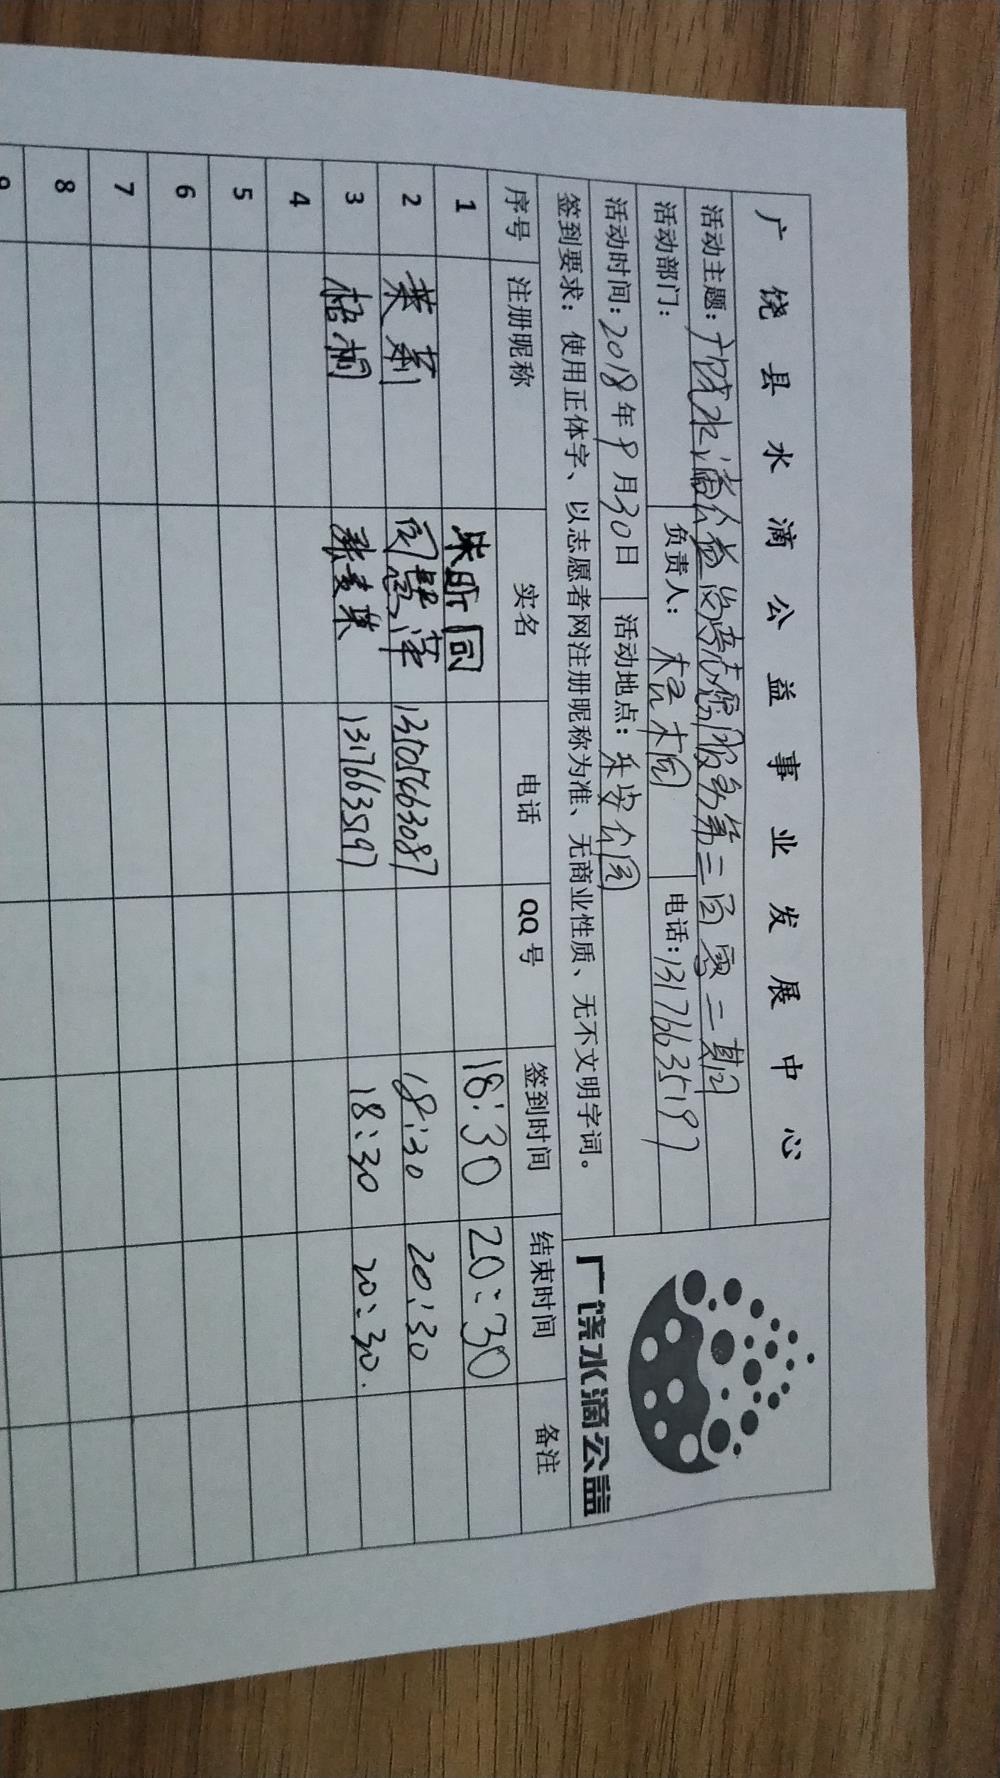 广饶县水滴公益事业发展中心
活动主题：广饶水滴公益
活动部门： 负责人：梧桐 电话：13176635197
活动时间：2018年9月30日 活动地点：乐安公园
广饶水滴公益
签到要求：使用正体字、以志愿者网注册昵称为准、无商业性质、无不文明字词。
序号 注册昵称 实名 电话 QQ号 签到时间 结束时间 备注
1 18:30 20:30
2 茉莉 13505463087 18:30 20:30
3 梧桐 张麦荣 13176635197 18:30 20:30.
4
5
6
7
8
9